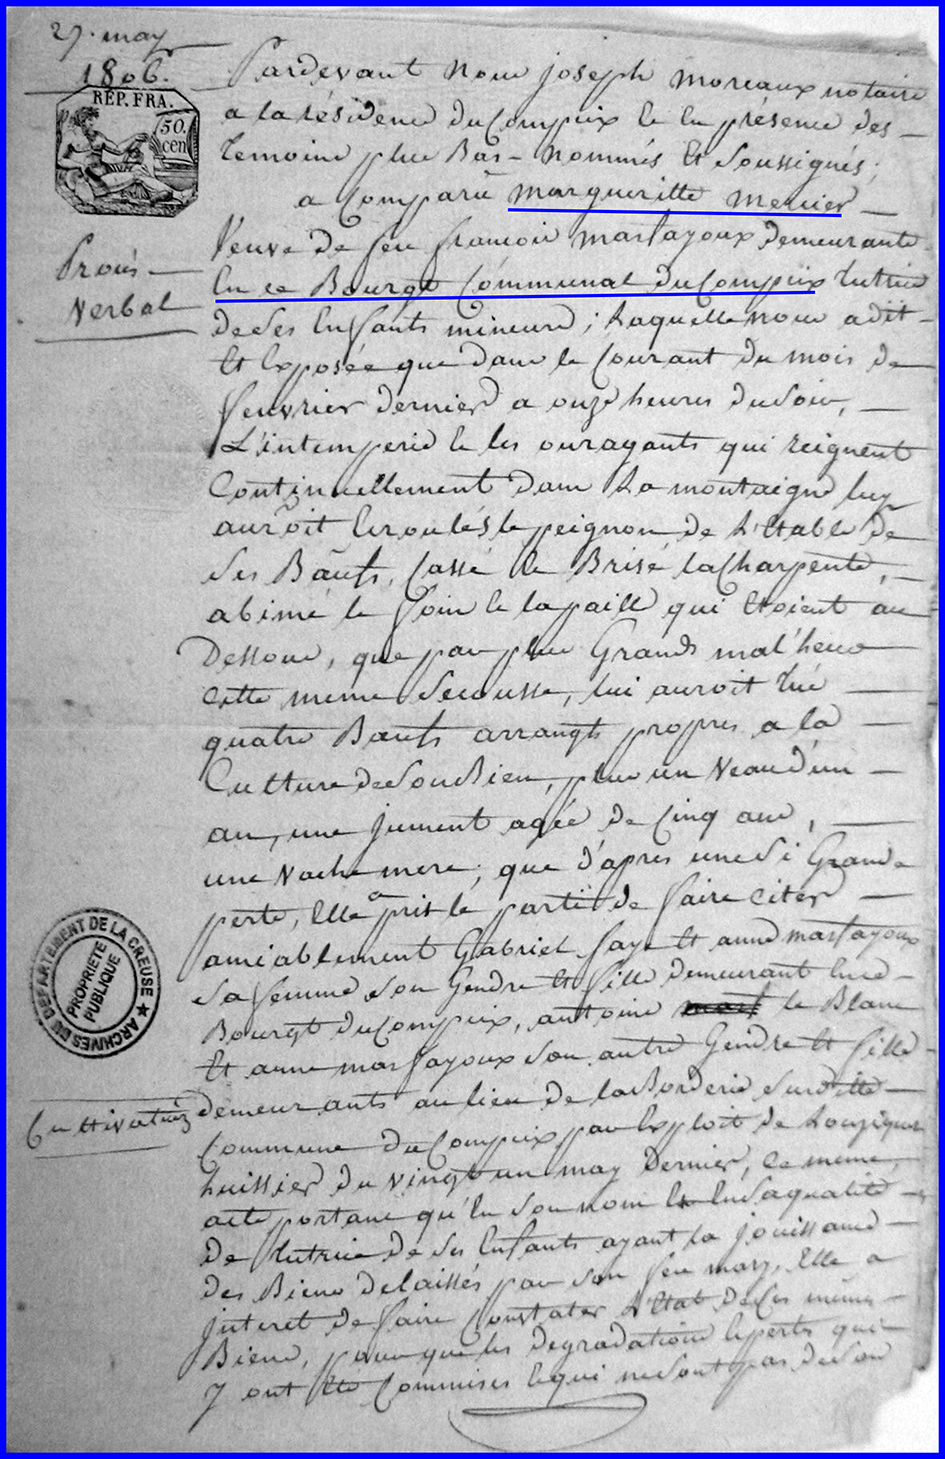 27. may
1806.
REP. FRA.
50.
cen
Pardevant nous joseph moreaux notaire
a la résidence du Compeix & en présence des
temoins plus Bas nommés Et Soussignés;
a Comparü margueritte mercier
Veuve de feu françois marsayoux demeurante
En ce Bourgt Communal du Compeix tutrice
Procès
Verbal
de Ses Enfants mineurs; Laquelle nous a dit
Et Exposée que dans le Courant du mois de
feuvrier dernier a onze heures du Soir,
L'intemperie & les ouragants qui reignent
Continuellement dans La montaigne luy
auroit Ecroulés le peignon de L'Etable de
Ses Bœufs, Cassé & Brisé la Charpente,
abimé le foin & la paille qui Etoient au
Dessous, que par plus Grands mal'heur
Cette meme Secousse, lui auroit tué
quatre Bœufs arrangts propres a la
Culture de Son Bien, plus un Veau d'un
an, une jument agée de Cinq ans,
une Vache mere; que d'apres une Si Grande
perte, Elle a prit le parti de faire citer
amiablement Gabriel faye Et anne marsayoux
Sa femme Son Gendre Et fille demeurant En ce
Bourgt du Compeix, antoine le Blanc
Et anne marsayoux Son autre Gendre Et fille
Cultivateurs
demeurants au lieu de la Borderie Surditte
Commune du Compeix par Exploit de
huissier du vingt un may Dernier, Ce meme
acte portant qu'En Son nom & En Sa qualité
De tutrice de Ses Enfants ayant la jouissance
des Biens delaissés par Son feu mary, Elle a
interet de faire Constater L'Etat de Ces memes
Biens, parce que les degradations & pertes qui
y ont Eté Commises & qui ne Sont pas de Son
DEPARTEMENT DE LA CREUSE ★ ARCHIVES DU
PROPRIETE
PUBLIQUE